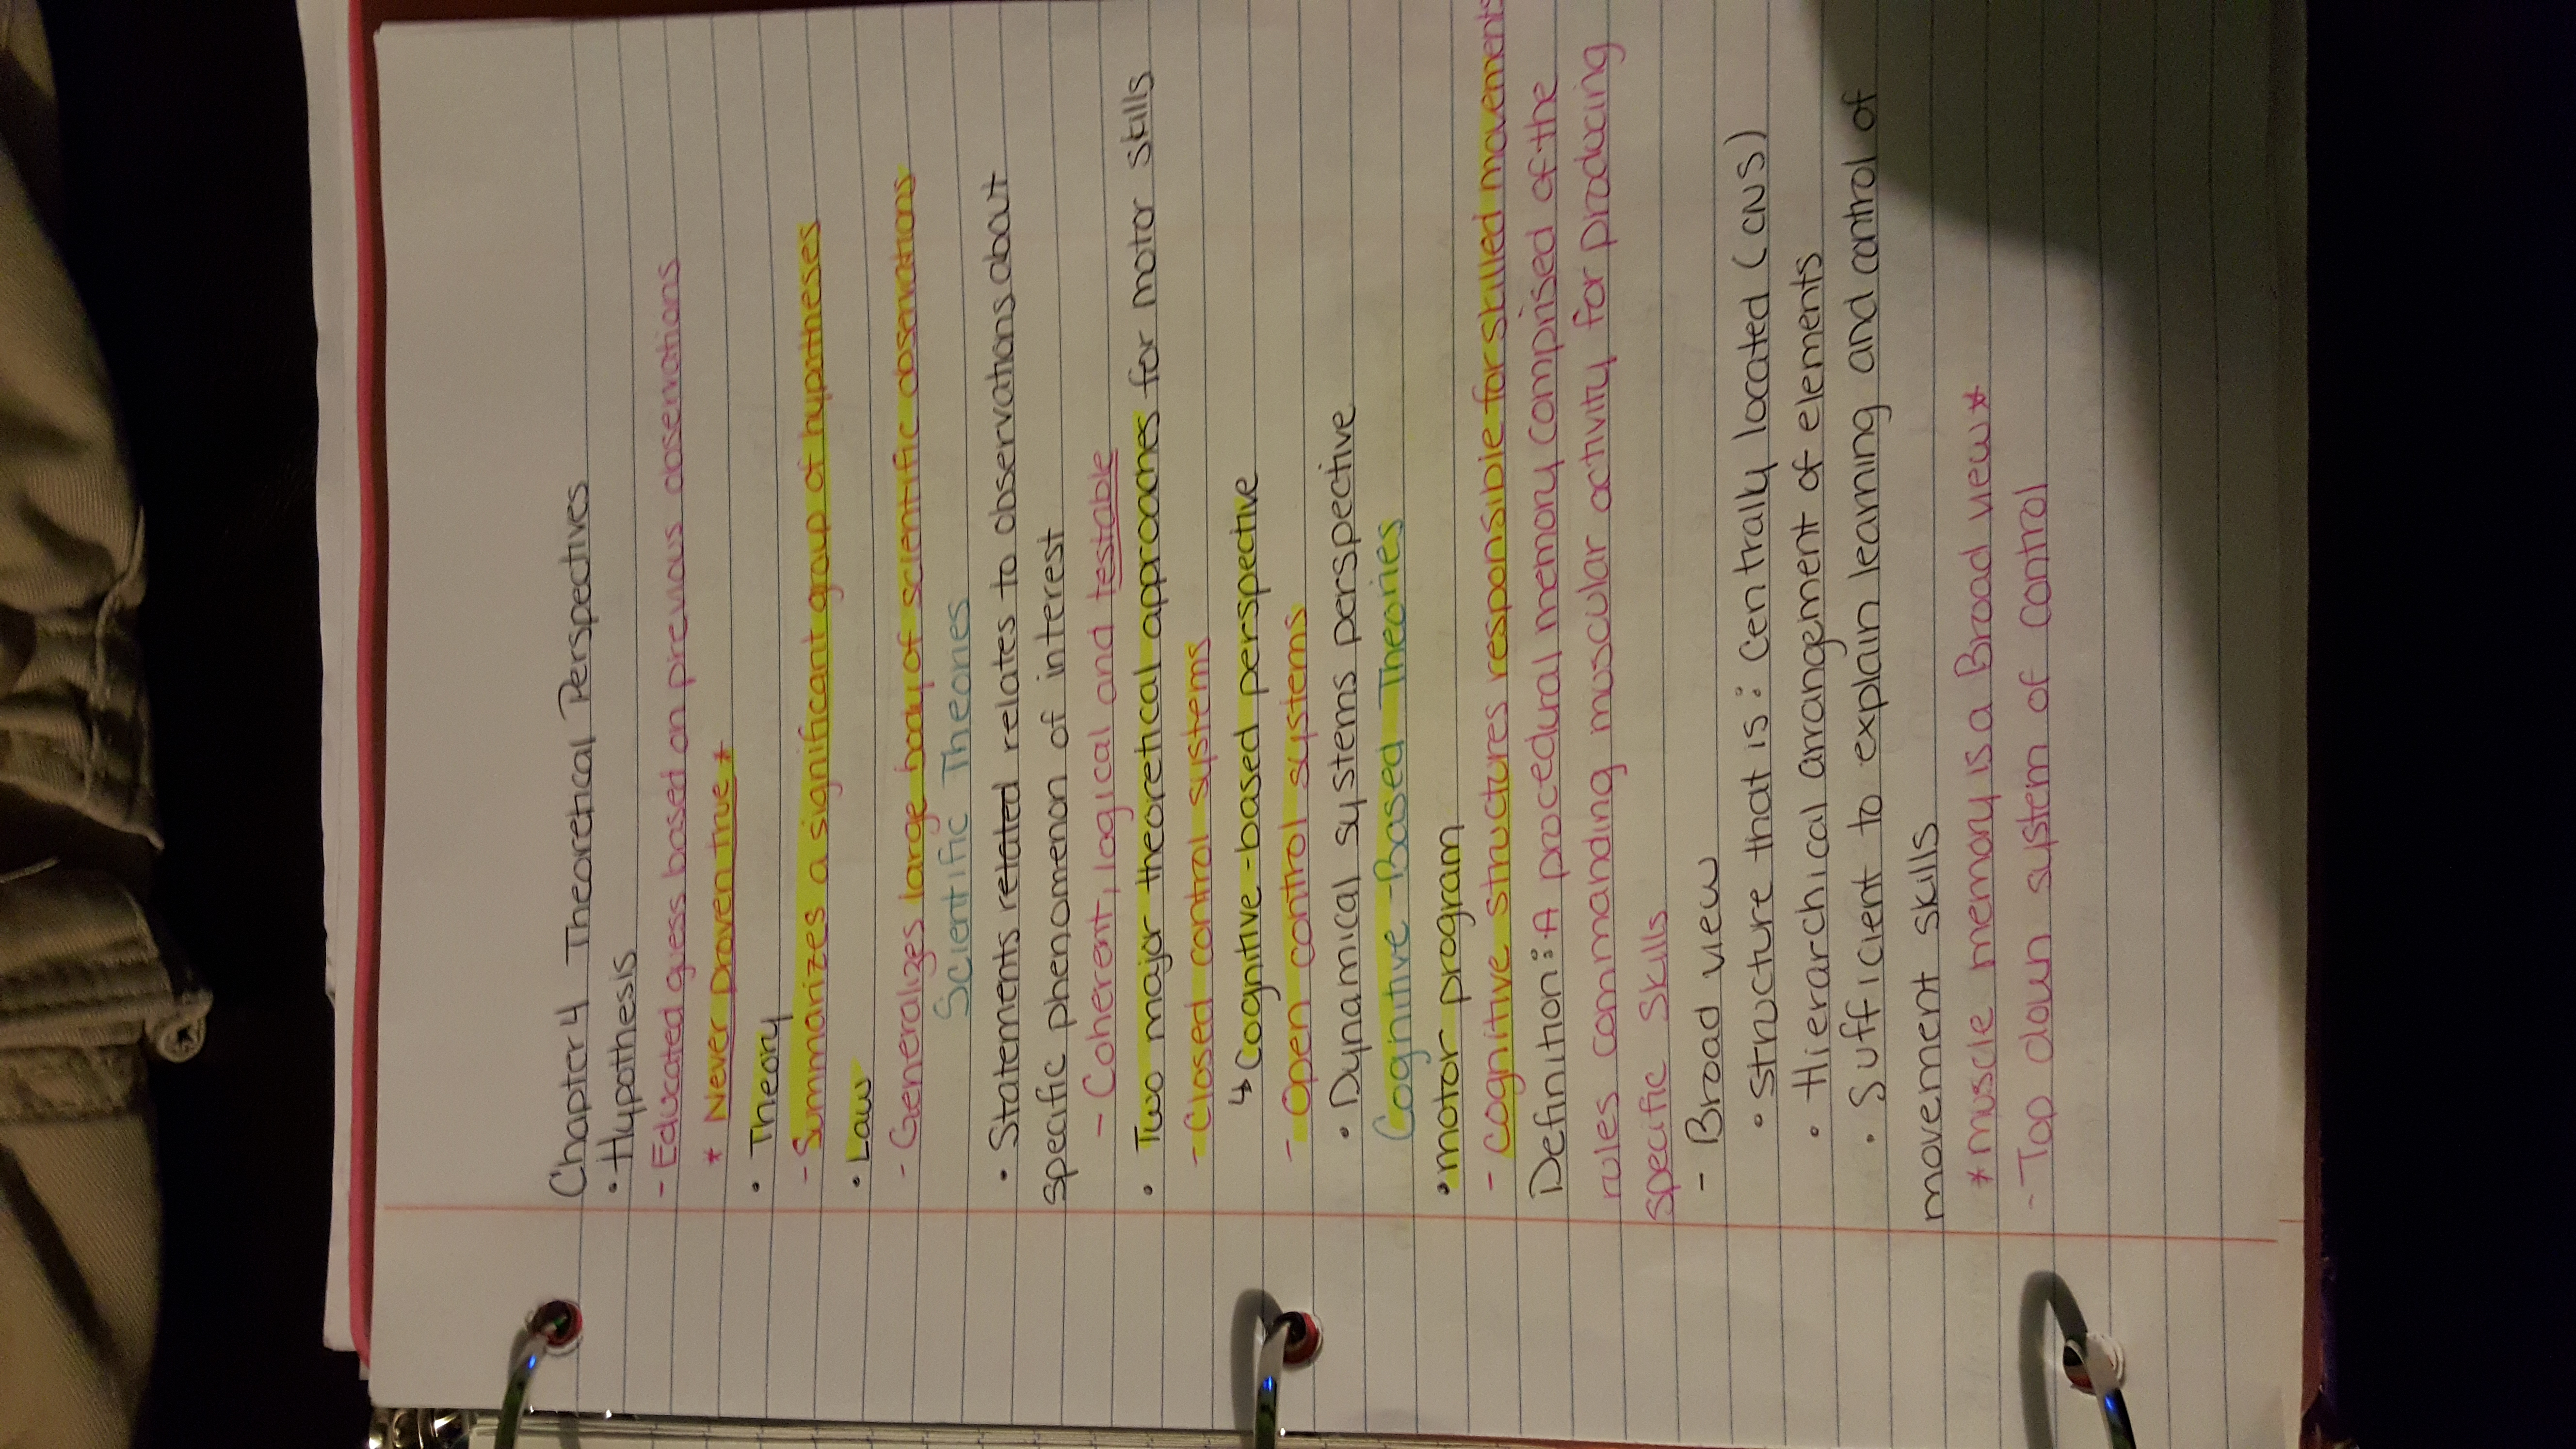 Chapter 4 Theoretical Perspectives
• Hypothesis
- Educated guess based on previous observations
* Never proven true *
• Theory
- Summarizes a significant group of hypotheses
• Law
- Generalizes large body of scientific observations
Scientific Theories
• Statements related relates to observations about
specific phenomenon of interest
- Coherent, logical and testable
• Two major theoretical approaches for motor skills
- Closed control systems
↳ Cognitive-based perspective
- Open control systems
• Dynamical systems perspective
Cognitive-Based Theories
• motor program
- cognitive structures responsible for skilled movements
Definition: A procedural memory comprised of the
rules commanding muscular activity for producing
specific skills
- Broad view
• structure that is: centrally located (CNS)
• Hierarchical arrangement of elements
• Sufficient to explain learning and control of
movement skills
* muscle memory is a Broad view *
- Top down system of control